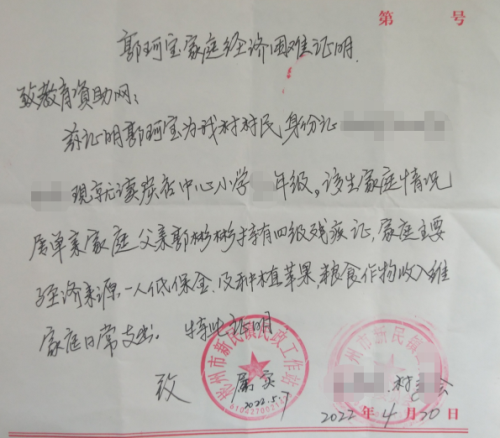 第 号
郭珂宝家庭经济困难证明.
致教育资助网:
兹证明郭珂宝为我村村民,身份证
现就读炭店中心小学 年级。该生家庭情况
属单亲家庭,父亲郭彬彬持有四级残疾证,家庭主要
经济来源,一人低保金.及种植苹果,粮食作物收入维
家庭日常支出。 特此证明
致 属实
2022.5.7
彬州市新民镇民政工作站
村委会
2022年4月30日